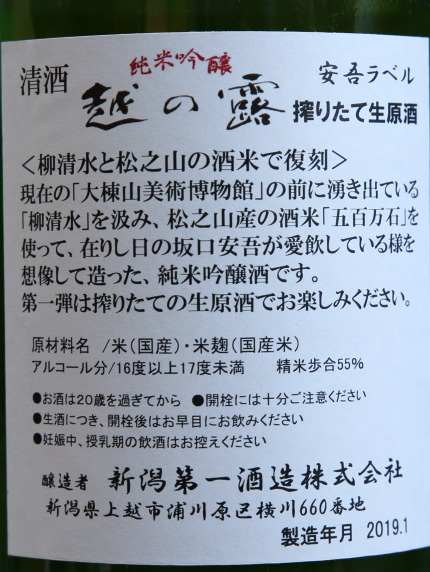 清酒 純米吟醸 安吾ラベル
越の露 搾りたて生原酒
＜柳清水と松之山の酒米で復刻＞
現在の「大棟山美術博物館」の前に湧き出ている
「柳清水」を汲み、松之山産の酒米「五百万石」を
使って、在りし日の坂口安吾が愛飲している様を
想像して造った、純米吟醸酒です。
第一弾は搾りたての生原酒でお楽しみください。
原材料名 /米（国産）・米麹（国産米）
アルコール分/16度以上17度未満 精米歩合55%
●お酒は20歳を過ぎてから ●開栓には十分ご注意ください
●生酒につき、開栓後はお早目にお飲みください
●妊娠中、授乳期の飲酒はお控えください
醸造者 新潟第一酒造株式会社
新潟県上越市浦川原区横川660番地
製造年月 2019.1